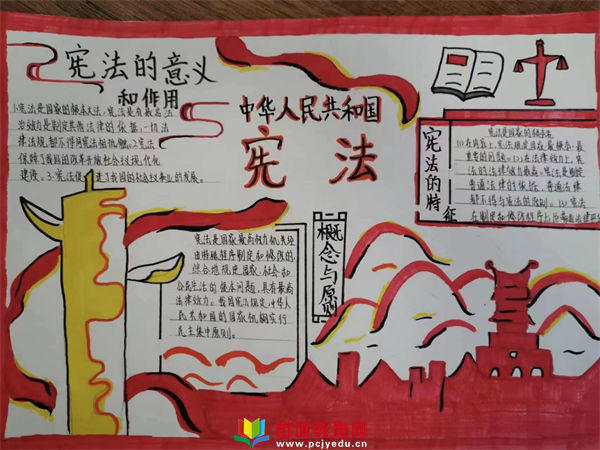 宪法的意义
和作用
1.宪法是国家的根本大法，宪法具有最高法
治效力是制定其他法律的依据，一切法
律法规都不得同宪法相抵触。2.宪法
保障了我国的改革开放社会主义现代化
建设。3.宪法促进了我国的社会主义事业的发展。
中华人民共和国
宪法
宪法的特征
宪法是国家的根本法
(1)在内容上，宪法规定国家最根本、最
重要的问题。(2)在法律效力上，宪
法的法律效力最高。宪法是制定
普通法律的依据，普通法律
都不得与宪法的原则。(3)宪法
在制定和修改程序上比普通法律
概念与原则
宪法是国家最高权力机关经
由特殊程序制定和修改的，
综合地规定国家、社会和
公民生活的根本问题，具有最高
法律效力。我国宪法规定，中华人
民共和国的国家机构实行
民主集中原则。
www.pcjyedu.cn